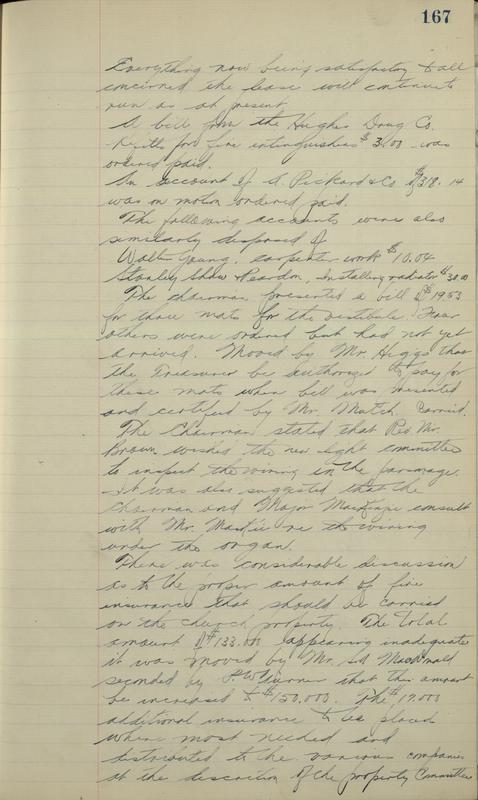 167
Everything now being satisfactory to all
concerned the lease will continue to
run as at present
A bill from the Hughes Drug Co.
for fire extinguishers $3.00 was
ordered paid.
An account of A. Pickard & Co of $318.14
was on motion ordered paid.
The following accounts were also
similarly disposed of
Walter Young, carpenter work $10.04
Stanley Shaw & Peardon, Installing radiator $30.00
The chairman presented a bill of $19.53
for three mats for the vestibule. Four
others were ordered but had not yet
arrived. Moved by Mr. Higgs that
the Treasurer be authorized to pay for
these mats when bill was presented
and certified by Mr. Mutch. Carried.
The Chairman stated that Rev Mr.
Brown wished the new light committee
to inspect the wiring in the parsonage.
It was also suggested that the
chairman and Major MacKenzie consult
with Mr. re the wiring
under the organ.
There was considerable discussion
as to the proper amount of fire
insurance that should be carried
on the church property. The total
amount of $133.000 appearing inadequate
it was moved by Mr. Sid MacDonald
seconded by P.W. Turner that this amount
be increased to $150,000. The $17.000
additional insurance to be placed
where most needed and
distributed to the various companies
at the discretion of the property Committee